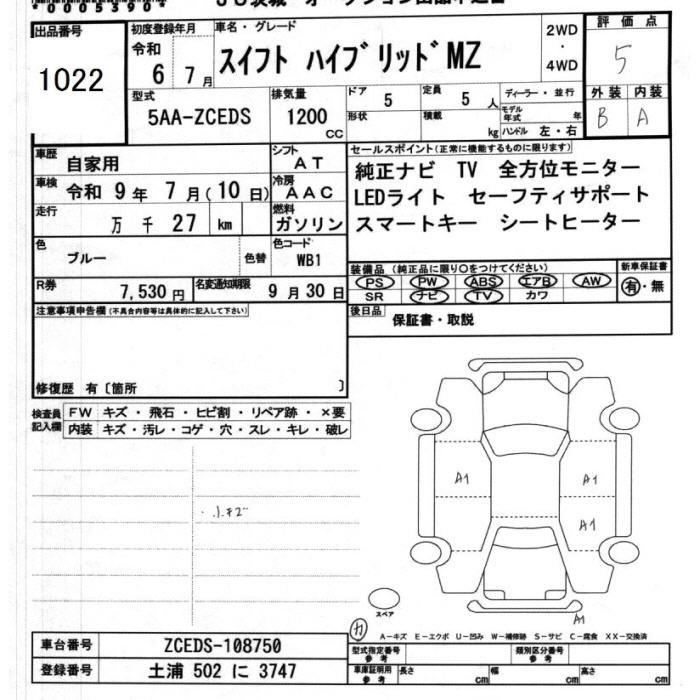 *0005390*
出品番号
1022
初度登録年月
令和
6 7月
車名・グレード
スイフト ハイブリッドMZ
2WD
・
4WD
評価点
5
外装 内装
B A
型式
5AA-ZCEDS
排気量
1200
cc
ドア
5
定員
5 人
形状
積載
kg
ディーラー・並行
モデル年式 年
ハンドル 左・右
車歴
自家用
シフト
AT
車検
令和 9年 7月(10日)
冷房
AAC
走行
万 千 27 km
燃料
ガソリン
色
ブルー
色替
色コード
WB1
R券
7,530円
名変通知期限
9月30日
セールスポイント(正常に機能するものに限ります)
純正ナビ TV 全方位モニター
LEDライト セーフティサポート
スマートキー シートヒーター
装備品(純正品に限り○をつけてください)
PS PW ABS エアB AW
SR ナビ TV カワ
新車保証書
有・無
後日品
保証書・取説
注意事項申告欄(不具合内容等は具体的に記入して下さい)
修復歴 有〔箇所 〕
検査員記入欄
FW キズ・飛石・ヒビ割・リペア跡・×要
内装 キズ・汚レ・コゲ・穴・スレ・キレ・破レ
・小キズ
A1
A1
A1
A1
スペア
カ
A-キズ E-エクボ U-凹み W-補修跡 S-サビ C-腐食 XX-交換済
車台番号
ZCEDS-108750
登録番号
土浦 502 に 3747
型式指定番号
参考
類別区分番号
参考
車庫証明用
参考
長さ cm
幅 cm
高さ cm